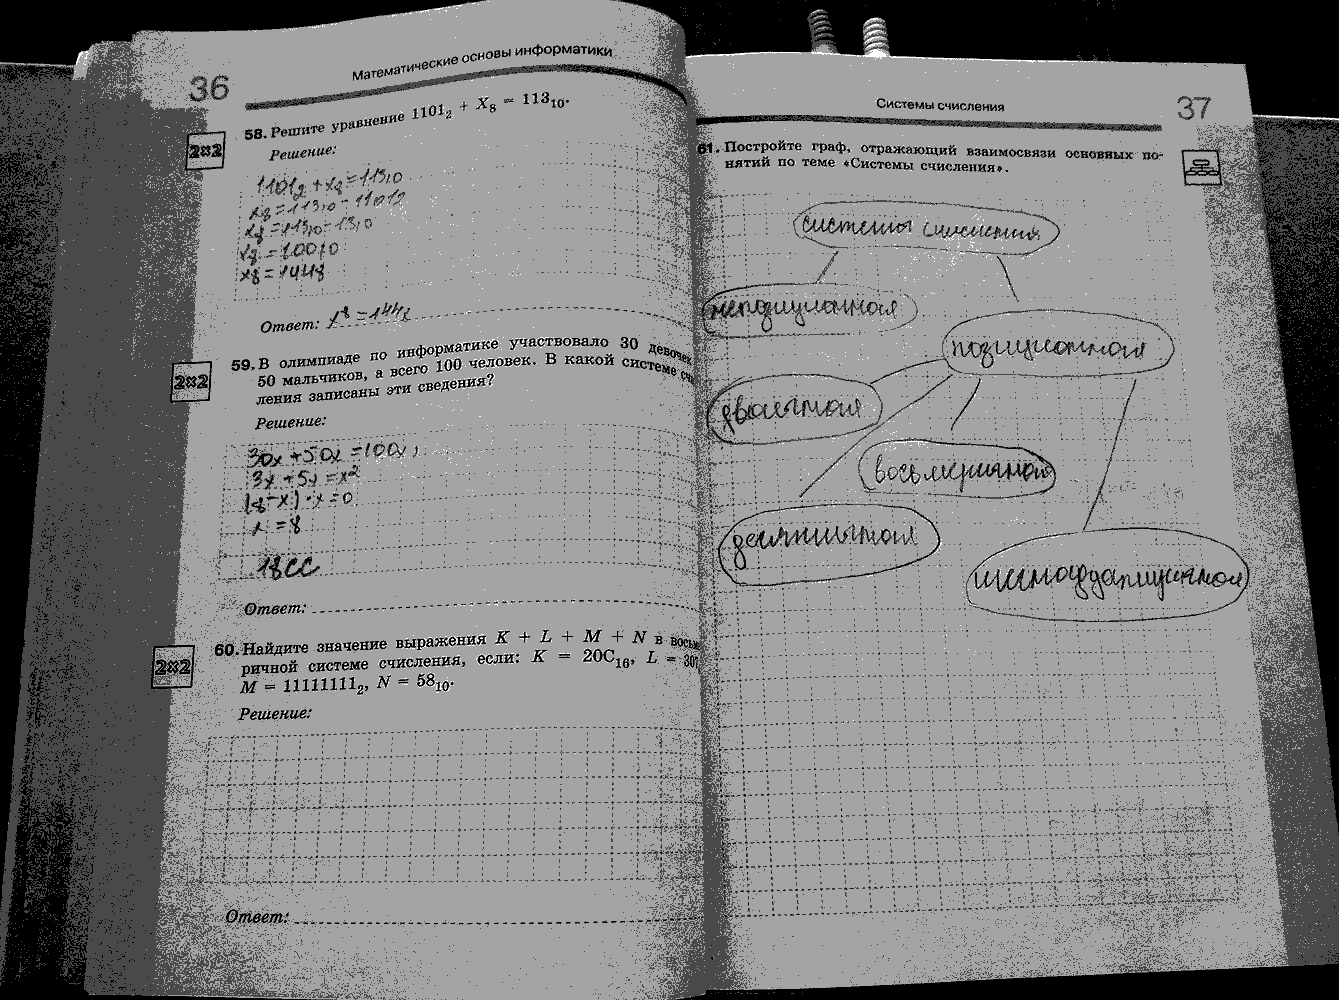 36
Математические основы информатики
58. Решите уравнение 1101₂ + X₈ = 113₁₀.
2x2
Решение:
1101₂ + x₈ = 113₁₀
x₈ = 113₁₀ - 1101₂
x₈ = 113₁₀ - 13₁₀
x₈ = 100₁₀
x₈ = 144₈
Ответ: x₈ = 144₈
59. В олимпиаде по информатике участвовало 30 девочек
2x2
50 мальчиков, а всего 100 человек. В какой системе
ления записаны эти сведения?
Решение:
30x + 50x = 100x
3x + 5x = x²
(8 - x) · x = 0
x = 8
18СС
Ответ:
60. Найдите значение выражения K + L + M + N в
2x2
ричной системе счисления, если: K = 20C₁₆, L =
M = 11111111₂, N = 58₁₀.
Решение:
Ответ:
Системы счисления
37
61. Постройте граф, отражающий взаимосвязи основных по-
нятий по теме «Системы счисления».
системы счисления
непозиционная
позиционная
двоичная
восьмеричная
десятичная
шестнадцатиричная